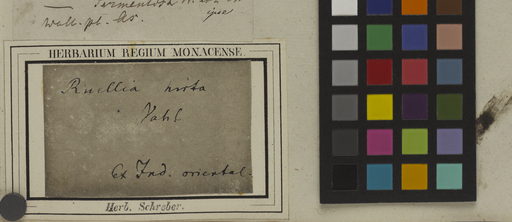 Wall. pl. As.
HERBARIUM REGIUM MONACENSE.
Ruellia hirta
Vahl
Ex Ind. oriental.
Herb. Schreber.